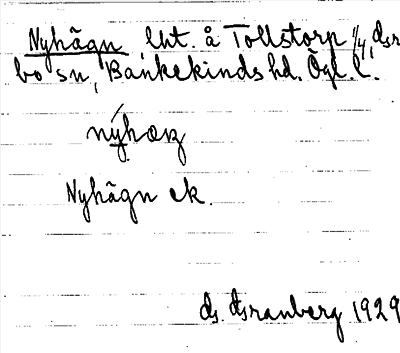 Nyhägn, lht. å Tollstorp 1/4,
bo sn, Bankekinds hd. Ögl. l.
nýhæŋ
Nyhägn ek.
1929